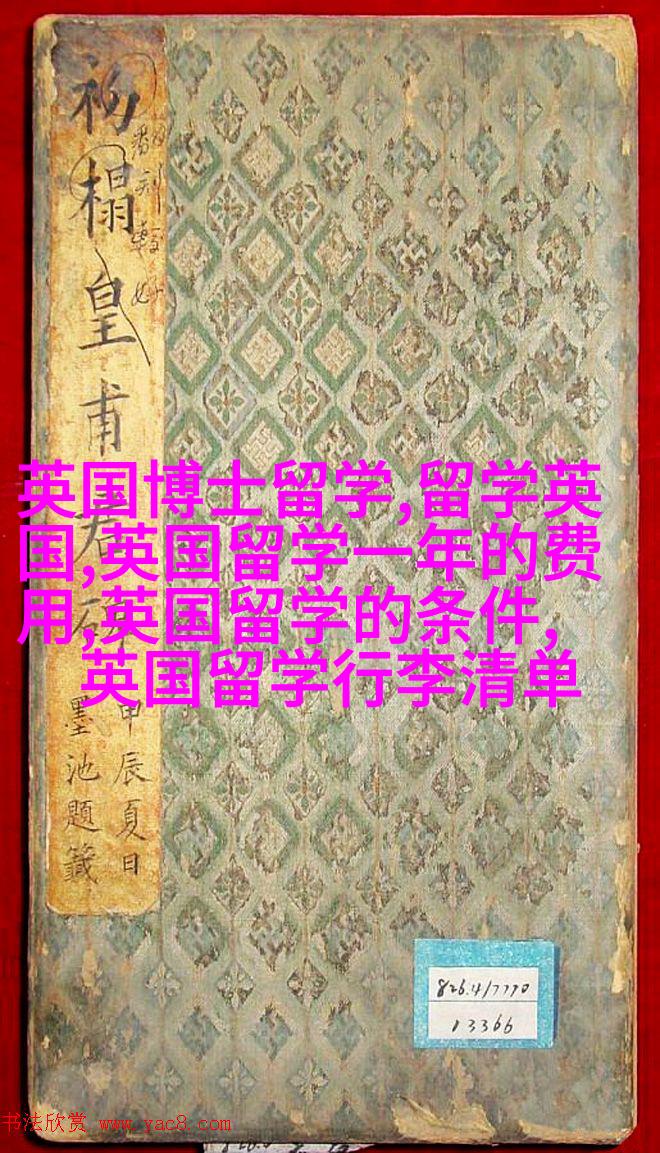 初榻皇甫君碑
翻刻較好
甲辰夏日
墨池題籤
英国博士留学,留学英
国,英国留学一年的费
用,英国留学的条件,
英国留学行李清单
826.4/7770
13366
书法欣赏 www.yac8.com